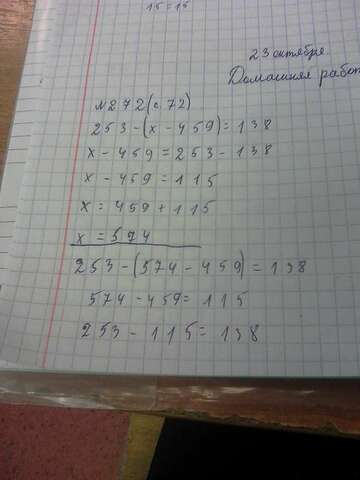 15 = 15
23 октября
Домашняя работ
№272(с.72)
253-(x-459)=138
x-459=253-138
x-459=115
x=459+115
x=574
253-(574-459)=138
574-459=115
253-115=138